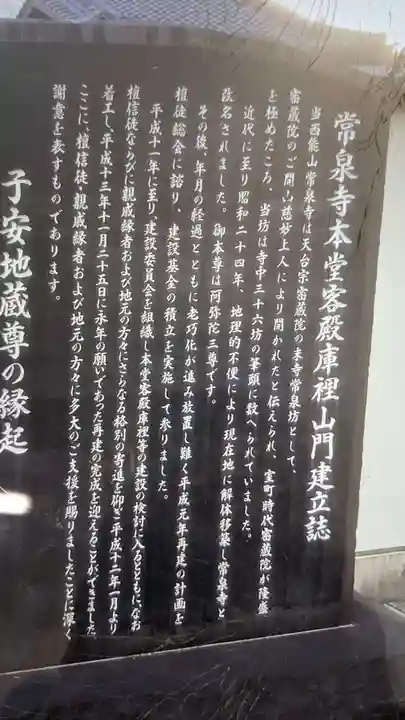 常泉寺本堂客殿庫裡山門建立誌
当西能山常泉寺は天台宗密蔵院の末寺常泉坊として、
密蔵院のご開山慈妙上人により開かれたと伝えられ、室町時代密蔵院が隆盛
を極めたころ、当坊は寺中三十六坊の筆頭に数へられていました。
近代に至り昭和二十四年、地理的不便により現在地に解体移築し常泉寺と
改名されました。御本尊は阿弥陀三尊です。
その後、年月の経過とともに老巧化が進み放置し難く平成元年再建の計画を
檀徒総会に諮り、建設基金の積立を実施して参りました。
平成十一年に至り、建設委員会を組織し本堂客殿庫裡等の建設の検討に入るとともに、なお
檀信徒ならびに親戚縁者および地元の方々にさらなる格別の寄進を仰ぎ平成十二年一月より
着工し、平成十三年十一月二十五日に永年の願いであった再建の完成を迎えることができました
ここに、檀信徒・親戚縁者および地元の方々に多大のご支援を賜りましたことに深く
謝意を表すものであります。
子安地蔵尊の縁起